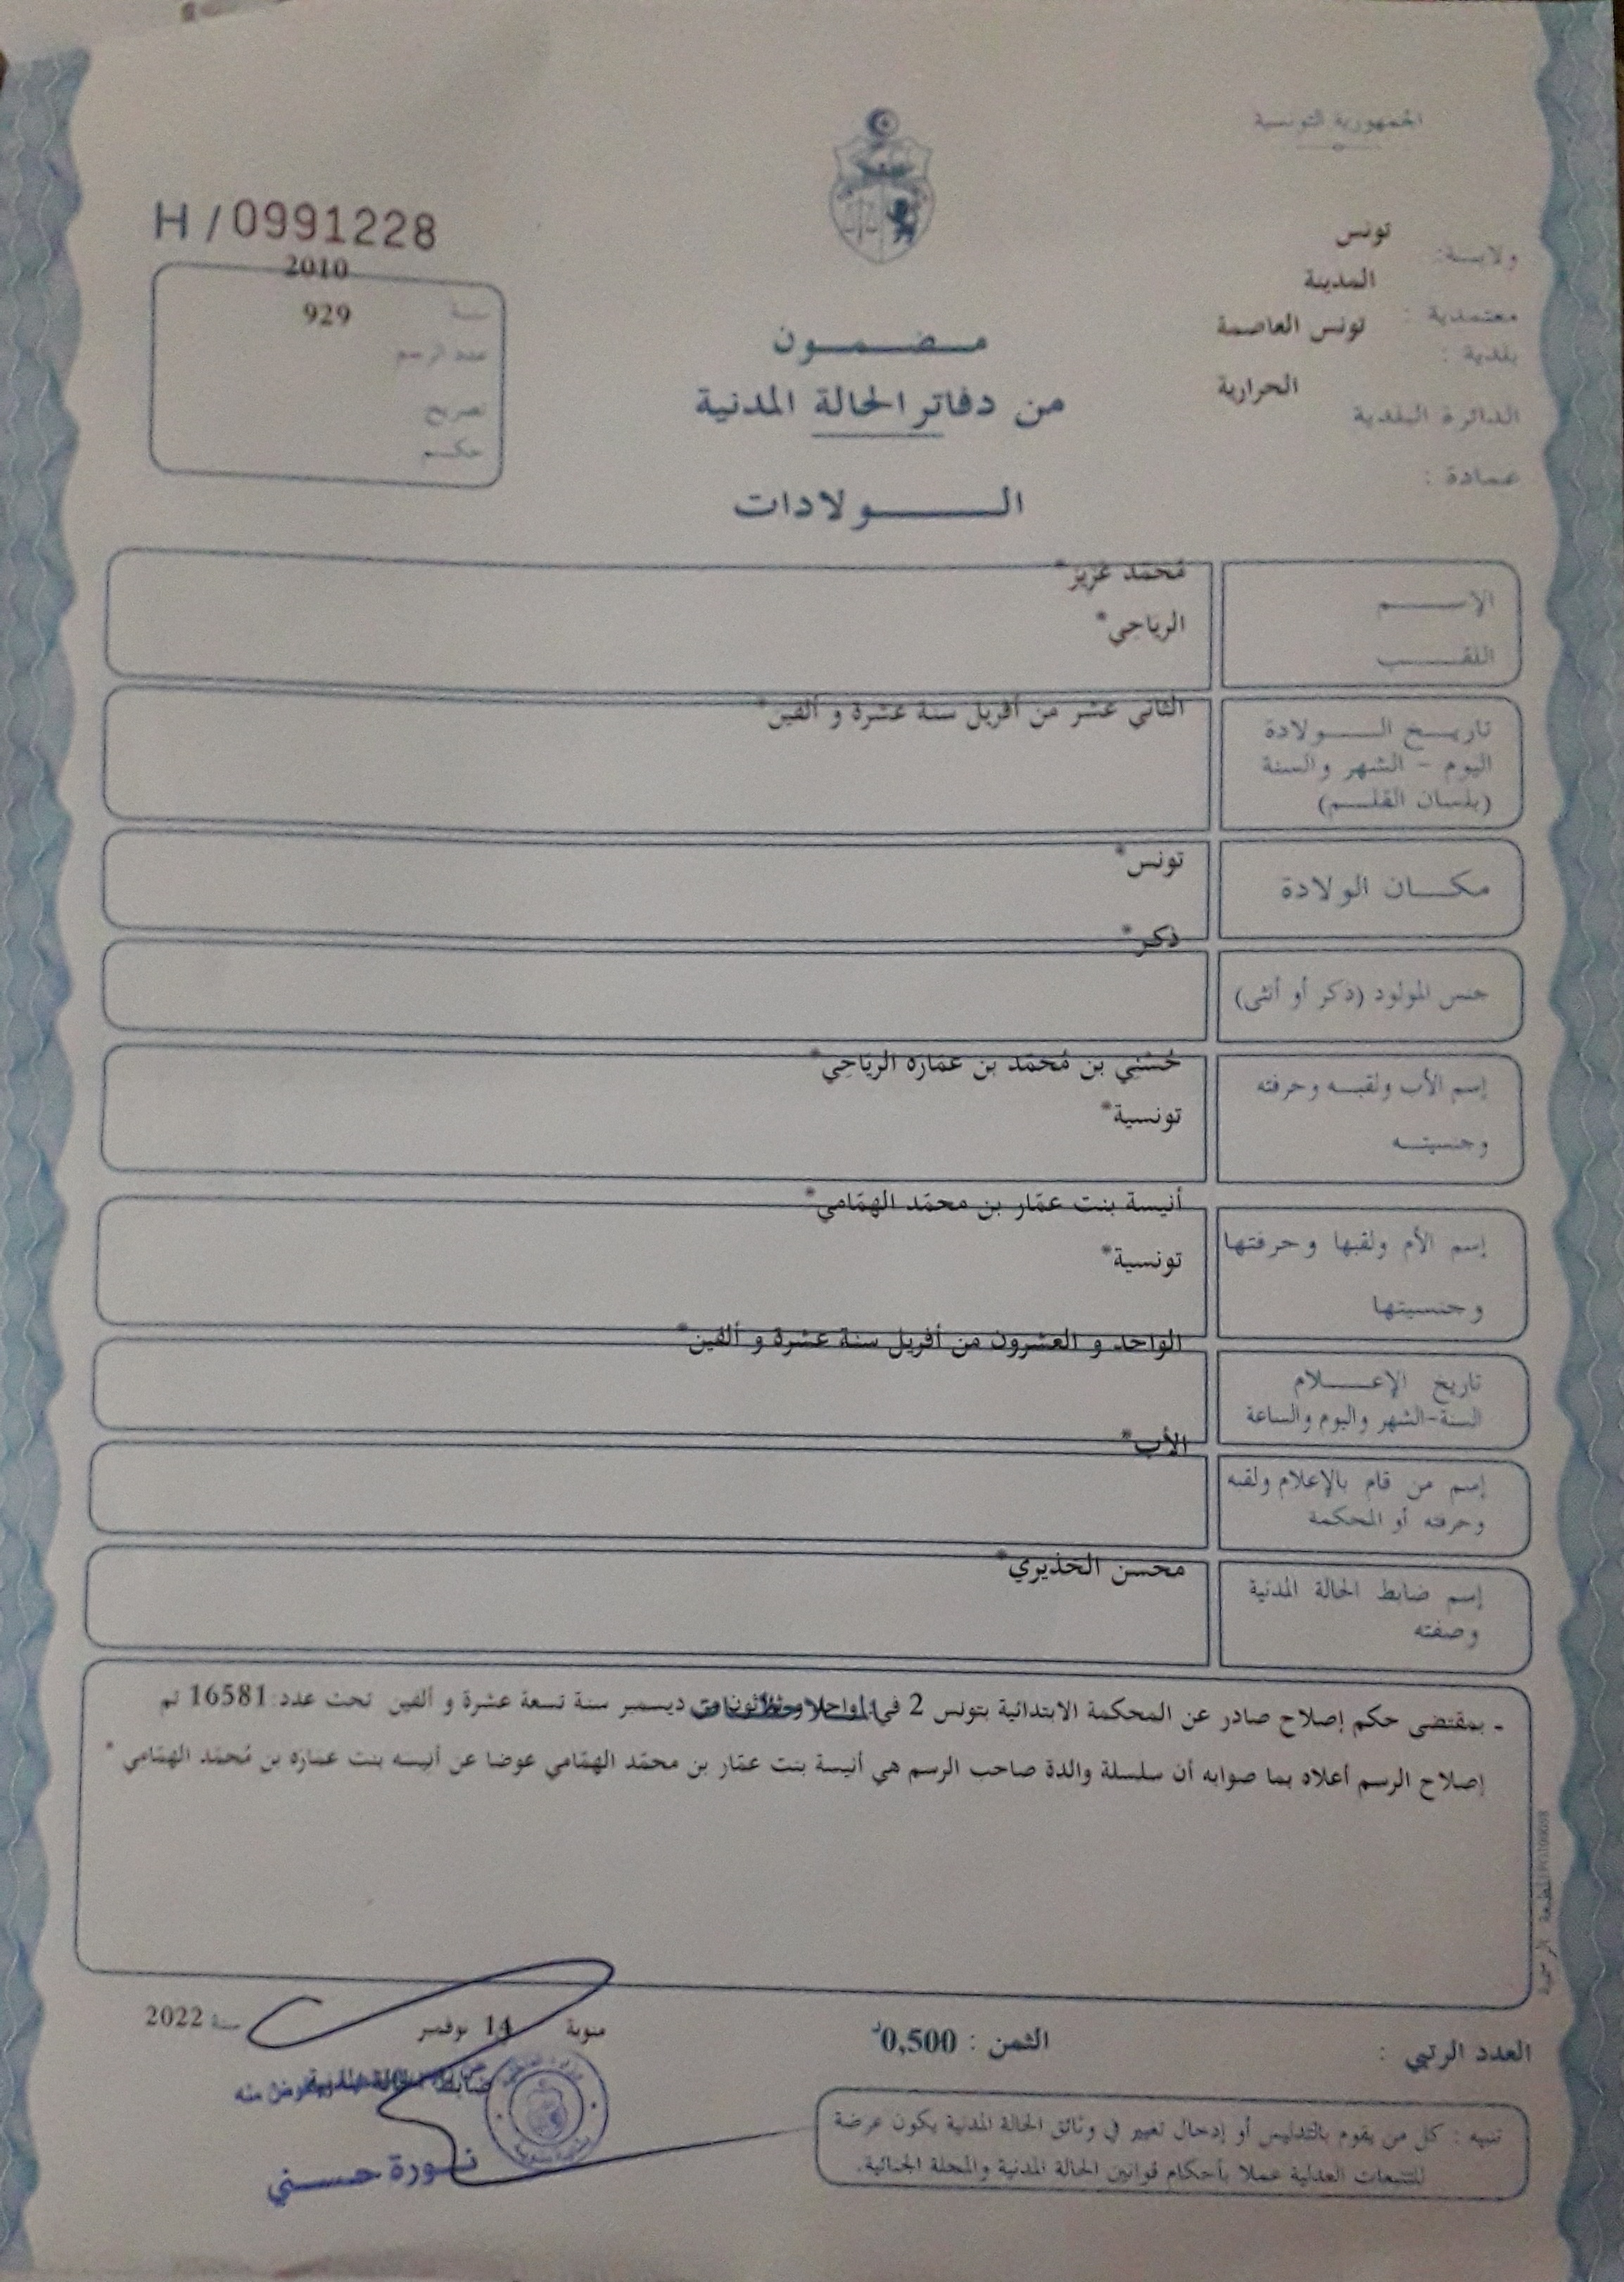 الجمهورية التونسية
H / 0991228
ولاية: تونس
معتمدية : المدينة
بلدية : تونس العاصمة
الدائرة البلدية الحرارية
عمادة :
سنة 2010
عدد الرسم 929
تصريح
حكم
مضمون
من دفاتر الحالة المدنية
الولادات
الإسم مُحمّد عَزيز*
اللقب الريَاحِي*
تاريخ الولادة الثاني عشر من أفريل سنة عشرة و ألفين*
اليوم - الشهر والسنة
(بلسان القلم)
مكان الولادة تونس*
جنس المولود (ذكر أو أنثى) ذكر*
إسم الأب ولقبه وحرفته حُسْنِي بن مُحمّد بن عمَاره الريَاحِي*
وجنسيته تونسية*
إسم الأم ولقبها وحرفتها أنيسة بنت عمّار بن محمّد الهمّامي*
وجنسيتها تونسية*
تاريخ الإعلام الواحد و العشرون من أفريل سنة عشرة و ألفين*
السنة-الشهر واليوم والساعة
إسم من قام بالإعلام ولقبه الأب*
وحرفته أو المحكمة
إسم ضابط الحالة المدنية محسن الخذيري*
وصفته
- بمقتضى حكم إصلاح صادر عن المحكمة الابتدائية بتونس 2 في ديسمبر سنة تسعة عشرة و ألفين تحت عدد: 16581 تم
إصلاح الرسم أعلاه بما صوابه أن سلسلة والدة صاحب الرسم هي أنيسة بنت عمّار بن محمّد الهمّامي عوضا عن أنيسه بنت عمّاره بن مُحمّد الهمّامي *
المطبعة الرسمية
منوبة 14 نوفمبر سنة 2022
العدد الرتبي :
الثمن : 0,500د
نورة حسني
تنبيه : كل من يقوم بالتدليس أو إدخال تغيير في وثائق الحالة المدنية يكون عرضة
للتتبعات العدلية عملا بأحكام قوانين الحالة المدنية والمجلة الجنائية.